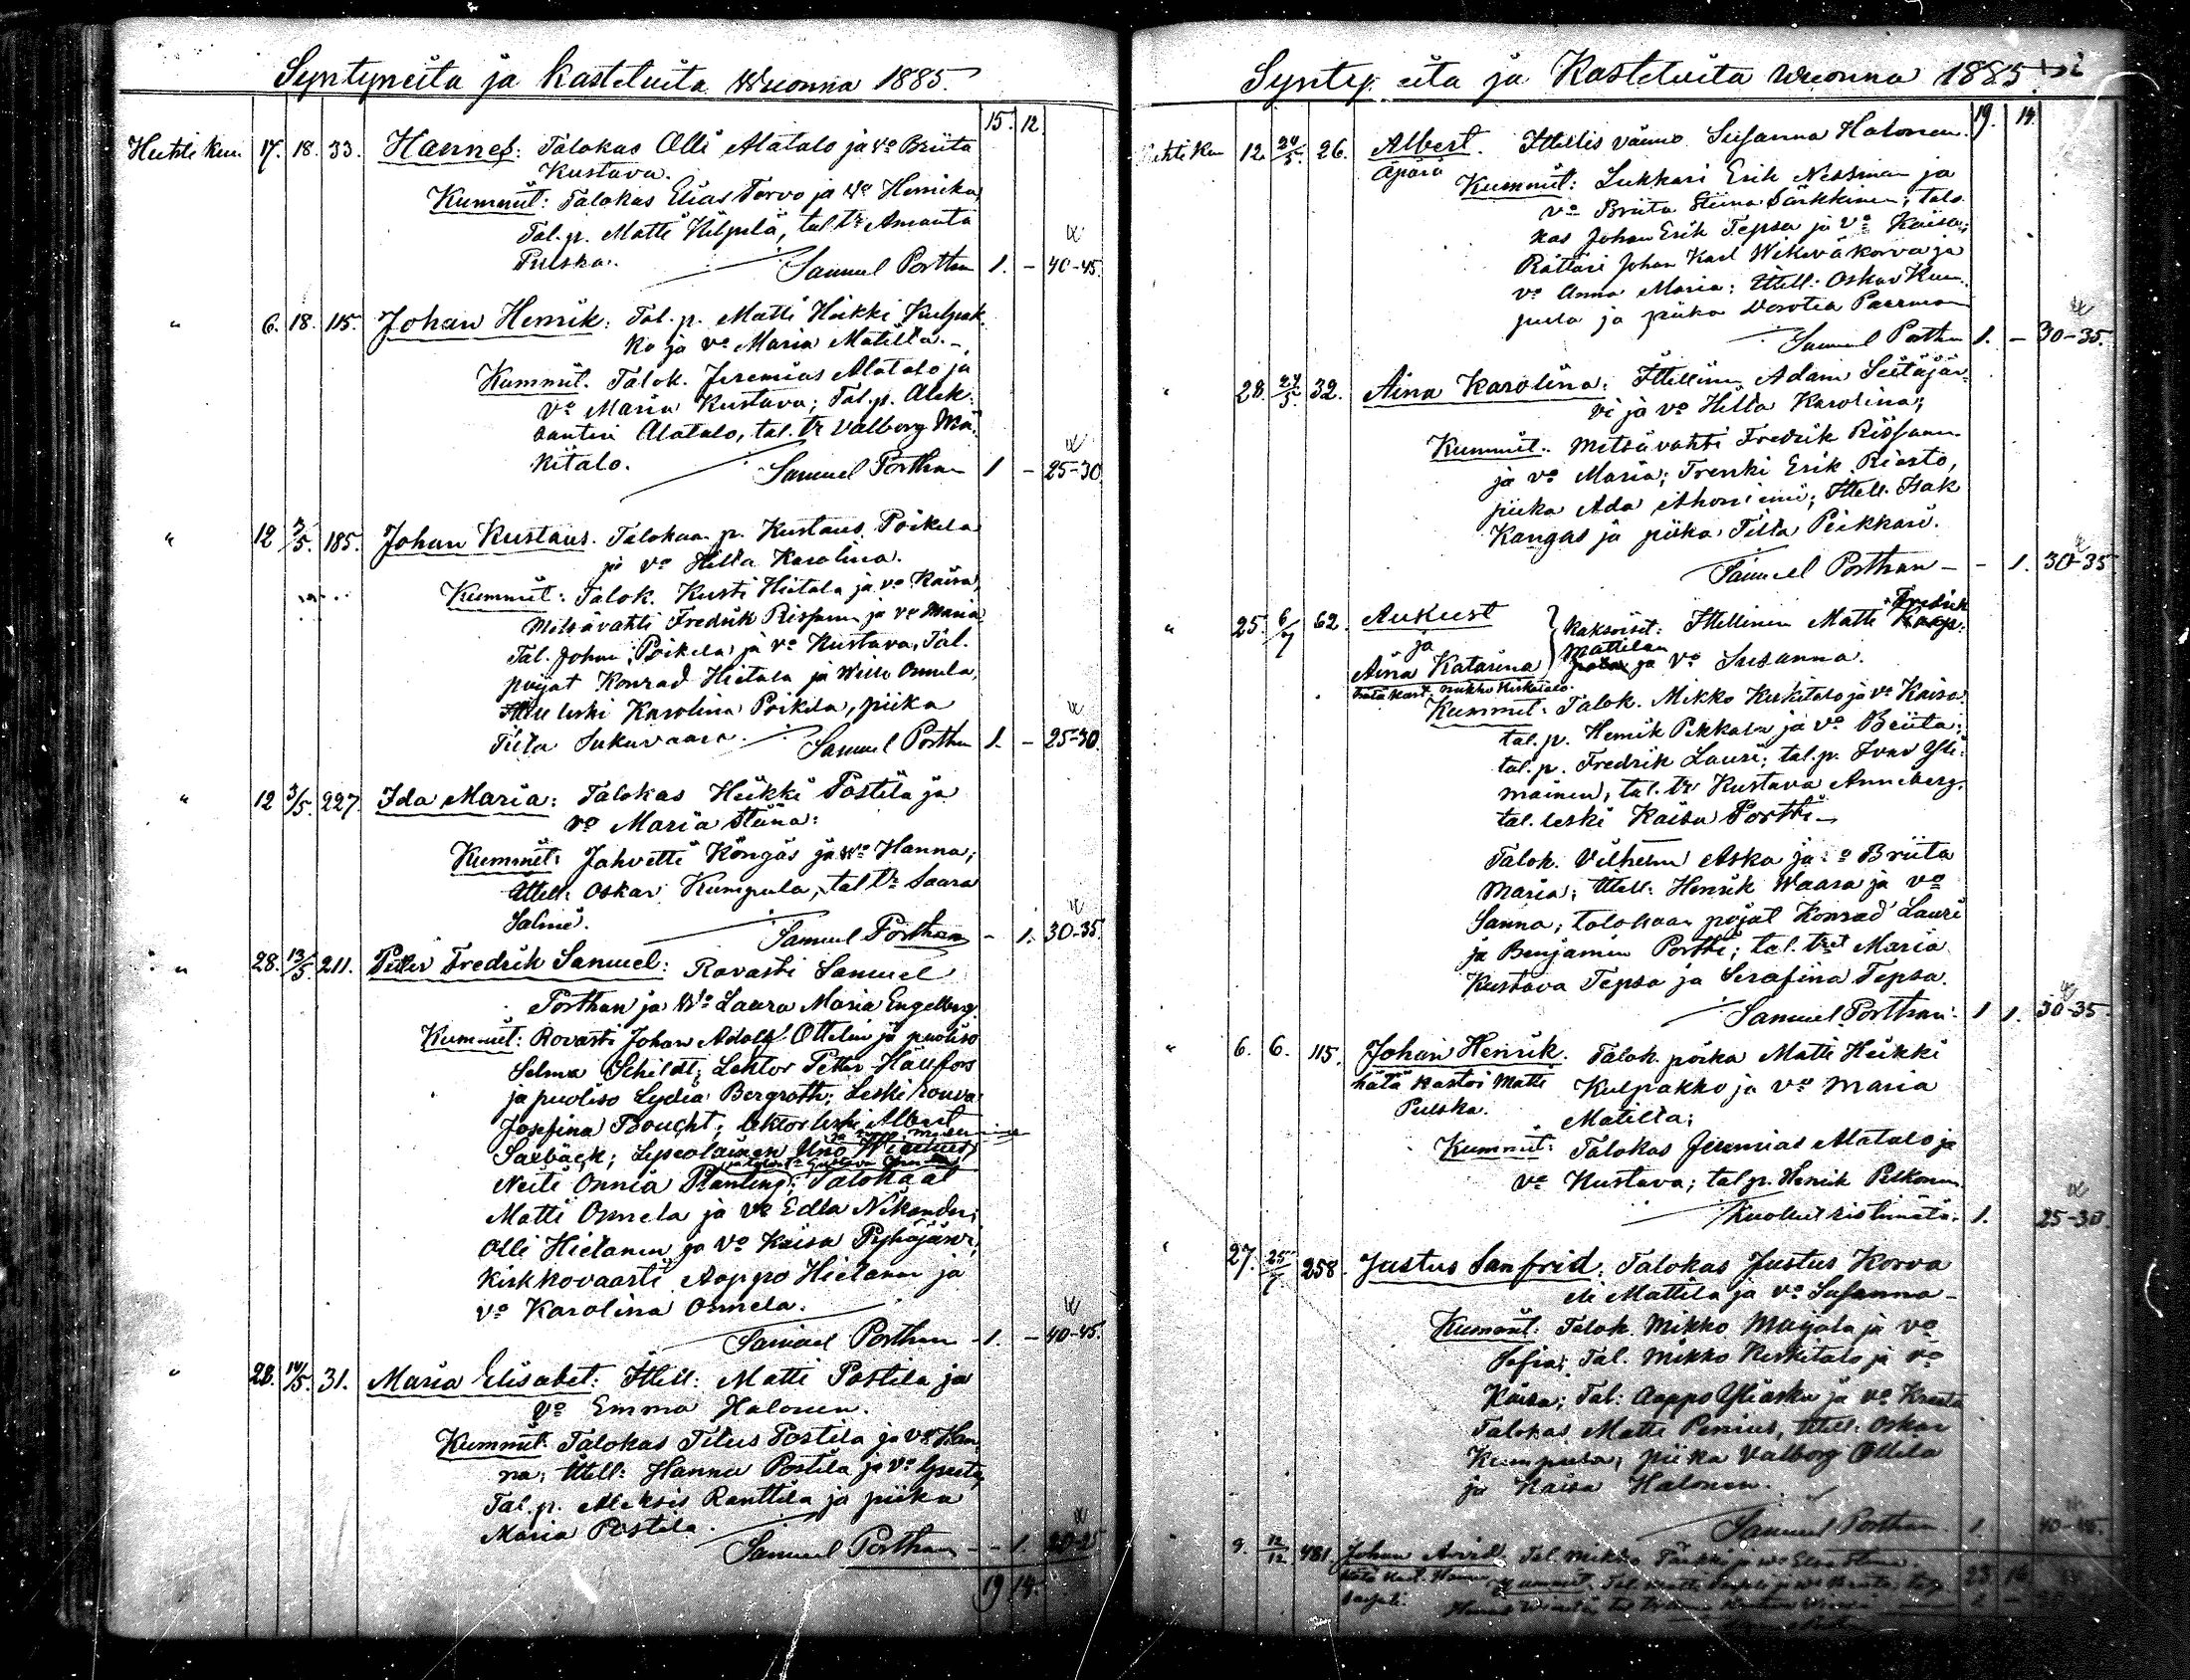 Syntyneitä ja kastetuita Wuonna 1885.
15. 12
Huhti kuu 17. 18. 33. Hannes: Talokas Olli Alatalo ja vo Briita
Kustava.
Kummit: Talokas Elias Torvo ja Wo Henrika,
Tal. p. Matti Hilpelä, tal. tr Amanta
Pulska.
Samuel Porthan 1. - 40-45.
" 6. 18. 115. Johan Henrik: Tal. p. Matti Heikki Kulpak-
ko ja vo Maria Matilta.
Kummit. Talok. Jeremias Alatalo ja
vo Maria Kustava; Tal. p. Alek-
santeri Alatalo, tal. tr Valborg Mä-
kitalo.
Samuel Porthan 1 - 25-30
" 12 3/5. 185. Johan Kustaus. Talokaan p. Kustaus Poikela
ja vo Hilta Karolina.
Kummit: Talok. Kusti Hietala ja vo Kaisa,
Metsävahti Fredrik Rissanen ja vo Maria
Tal. Johan Poikela ja vo Kustava, Tal.
pojat Konrad Hietala ja Wille Onnela,
Ittell. leski Karolina Poikela, piika
Tilta Sukuvaara.
Samuel Porthan 1. - 25-30.
" 12 3/5. 227. Ida Maria: Talokas Heikki Postila ja
vo Maria Stiina:
Kummit: Jahvetti Köngäs ja Wo Hanna;
Ittell: Oskar Kumpula, tal tr Saara
Salmi.
Samuel Porthan - 1. 30-35.
" 28. 13/5. 211. Petter Fredrik Samuel: Rovasti Samuel
Porthan ja Wo Laura Maria Engelberg.
Kummit: Rovasti Johan Adolf Ottelin ja puoliso
Selma Schildt; Lektor Petter Hällfors
ja puoliso Lydia Bergroth; Leski rouva
Josefina Boucht; lektor leski Albert
Salbäck; Lyseolainen Uno
Neiti Onnia Planting; Talokaat
Matti Onnela ja vo Edla Nikander;
Olli Hietanen ja vo Kaisa Pyhäjärvi;
Kirkkovaarti Aappo Hietanen ja
vo Karolina Onnela.
Samuel Porthan - 1. - 40-45.
" 28. 14/5. 31. Maria Elisabet: Ittell: Matti Postila ja
vo Emma Halonen.
Kummit: Talokas Titus Postila ja vo Han-
na; Ittell: Hannu Postila ja vo Greeta,
Tal. p. Aleksis Ranttila ja piika
Maria Postila.
Samuel Porthan - - 1. 20-25
19 14.
Synty eitä ja Kastetuita Wuonna 1885.
19. 14.
Huhti Kuu 12. 24/5. 26. Albert. Ittellis vaimo Susanna Halonen.
Äpärä Kummit: Lukkari Erik Nessman ja
vo Briita Stiina Särkkinen; Talo-
kas Johan Erik Tepsa ja vo Kaisa;
Rättäri Johan Karl Wikeväkorva ja
vo Anna Maria; Ittell: Oskar Kum-
pula ja piika Dorotea Paarman
Samuel Porthan 1. - 30-35.
" 28. 24/5. 32. Aina Karolina: Ittellinen Adam Seitäjär-
vi ja vo Hilta Karolina;
Kummit: Metsävahti Fredrik Rissanen
ja vo Maria; Trenki Erik Riesto,
piika Ada Ahoniemi; Ittell. Isak
Kangas ja piika Tilta Peikkari.
Samuel Porthan - - 1. 30-35
" 25. 6/7 62. Aukust
ja
Aina Katarina
Kaksoiset: Ittellinen Matti Fredrik
Mattilan ja vo Susanna.
hätä kast. Mikko Kiskitalo.
Kummit: Talok. Mikko Kiskitalo ja vo Kaisa
tal. p. Henrik Pekkala ja vo Briita;
tal. p. Fredrik Lauri; tal. p. Ivar Yli-
mäinen, tal. tr Kustava Anneberg,
tal. leski Kaisa Portti
Talok. Vilhelm Aska ja vo Briita
Maria; Ittell: Henrik Waara ja vo
Sanna; talokaan pojat Konrad Lauri
ja Benjamin Portti; tal. tret Maria
Kustava Tepsa ja Serafina Tepsa.
Samuel Porthan. 1 1. 30-35.
" 6. 6. 115. Johan Henrik. Talok. poika Matti Heikki
hätä kastoi Matti Kulpakko ja vo Maria
Pulska. Matilta;
Kummit: Talokas Jeremias Alatalo ja
vo Kustava; tal p. Henrik Pelkonen
Kuollut ristimätä. 1. 25-30.
27. 25/7 258. Justus Sanfrid: Talokas Justus Korva
eli Mattila ja vo Susanna -
Kummit: Talok. Mikko Maijala ja vo
Sofia; Tal. Mikko Kiskitalo ja vo
Kaisa; Tal: Aappo Yliaska ja vo Kreeta
Talokas Matti Penius, Ittell. Oskar
Kumpula, piika Valborg Ollila
ja Kaisa Halonen.
Samuel Porthan. 1. 40-45.
" 9. 12/12. 481. Johan Arvid Tal. Mikko
hätä kast. Hannu Kummit.
23 16